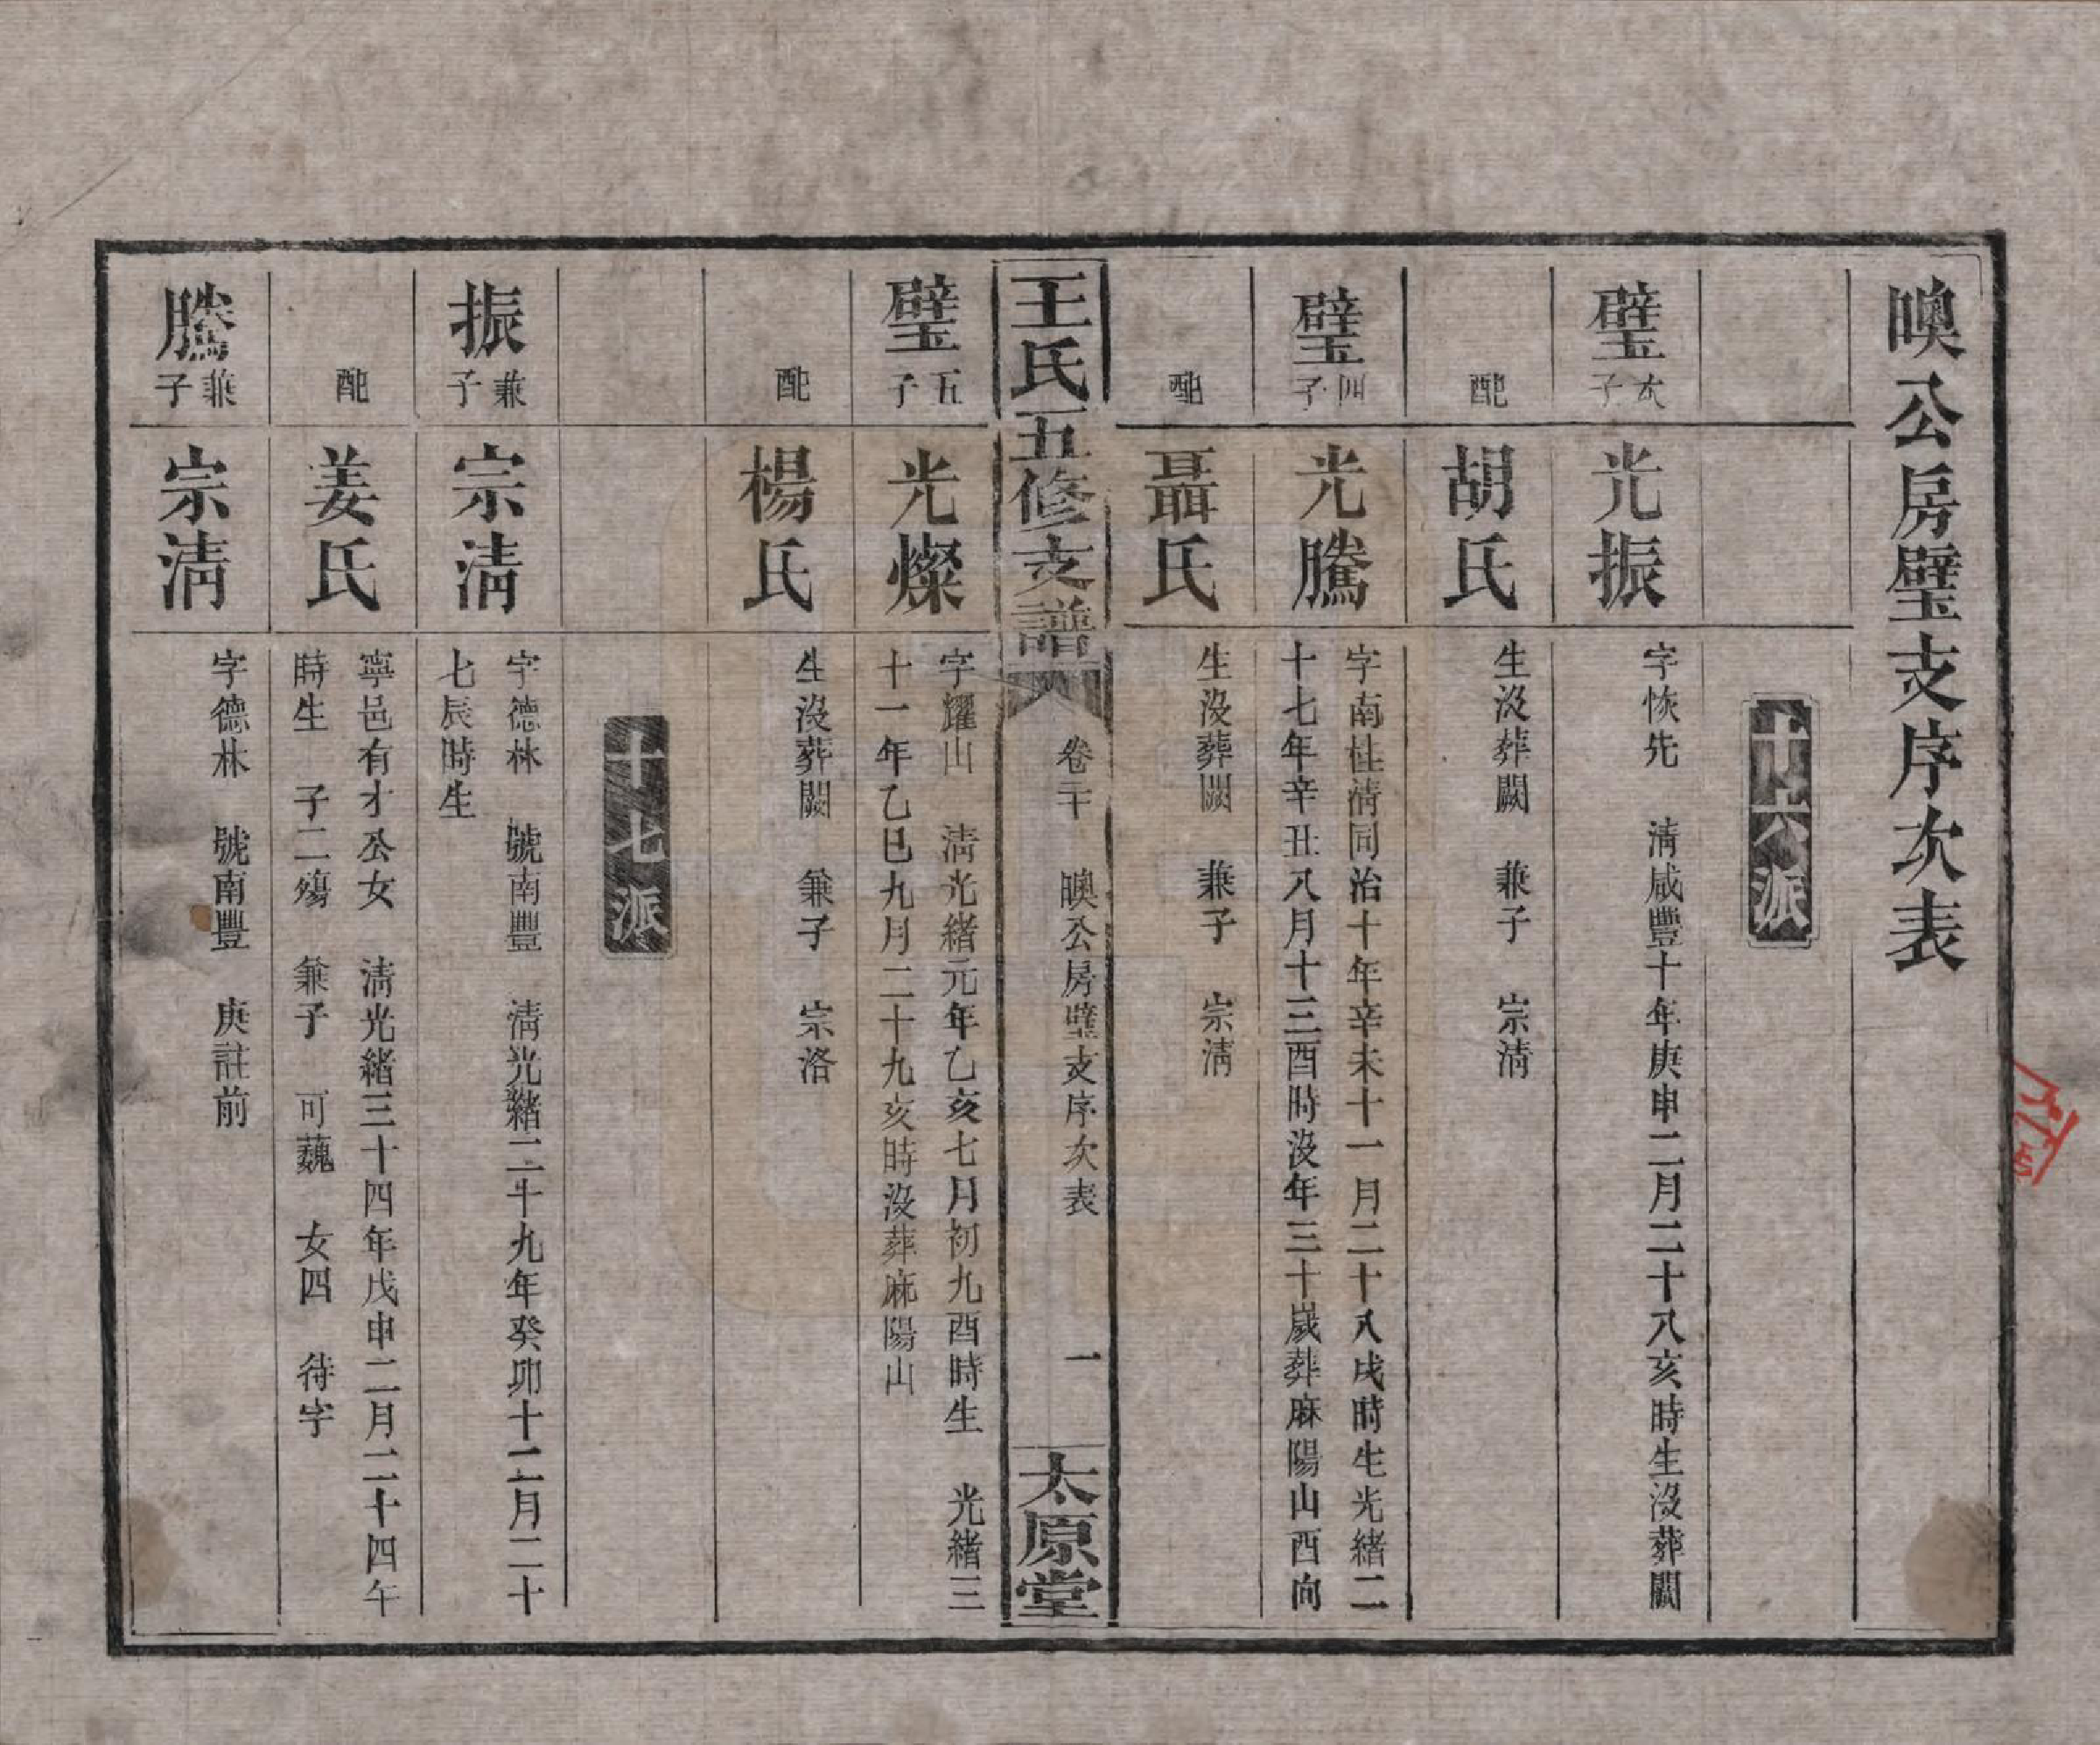 㬂公房璧支序次表
十六派
璧次子
光振
字恢先　清咸豐十年庚申二月二十八亥時生沒葬闕
配
胡氏
生沒葬闕　兼子　宗清
璧四子
光騰
字南桂清同治十年辛未十一月二十八戌時生光緒二
十七年辛丑八月十三酉時沒年三十歲葬麻陽山西向
配
聶氏
生沒葬闕　兼子　宗清
王氏五修支譜
卷二十　㬂公房璧支序次表　一
太原堂
璧五子
光燦
字耀山　清光緒元年乙亥七月初九酉時生　光緒三
十一年乙巳九月二十九亥時沒葬麻陽山
配
楊氏
生沒葬闕　兼子　宗洛
十七派
振兼子
宗清
字德林　號南豐　清光緒二十九年癸卯十二月二十
七辰時生
配
姜氏
寧邑有才公女　清光緒三十四年戊申二月二十四午
時生　子二殤　兼子　可巍　女四　待字
騰兼子
宗清
字德林　號南豐　庚註前